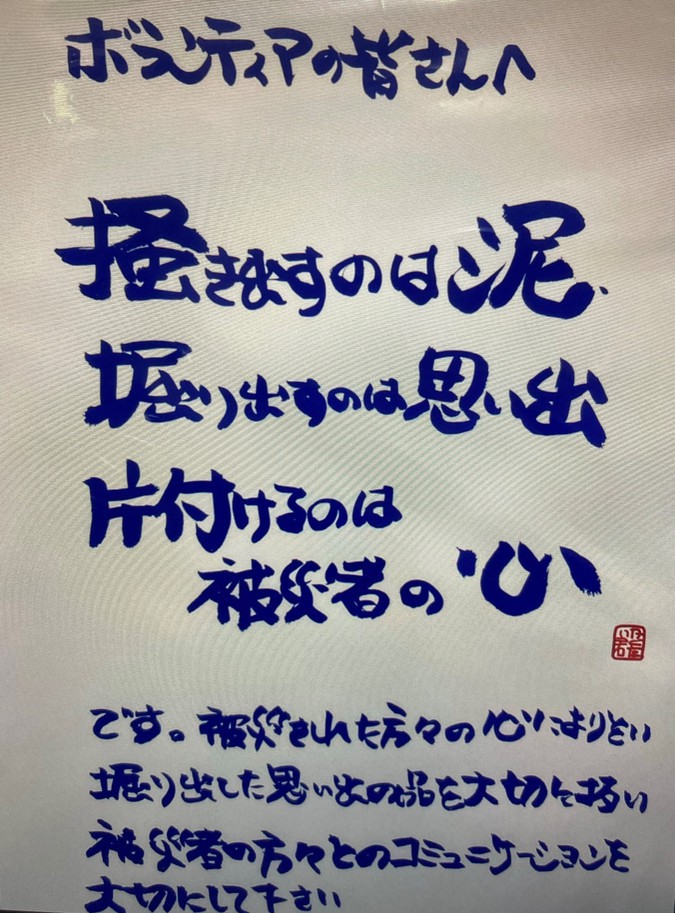 ボランティアの皆さんへ
掻きますのは泥
堀り出すのは思い出
片付けるのは
被災者の心
です。被災された方々の心により
堀り出した思い出の品を大切に扱い
被災者の方々とのコミュニケーションを
大切にして下さい